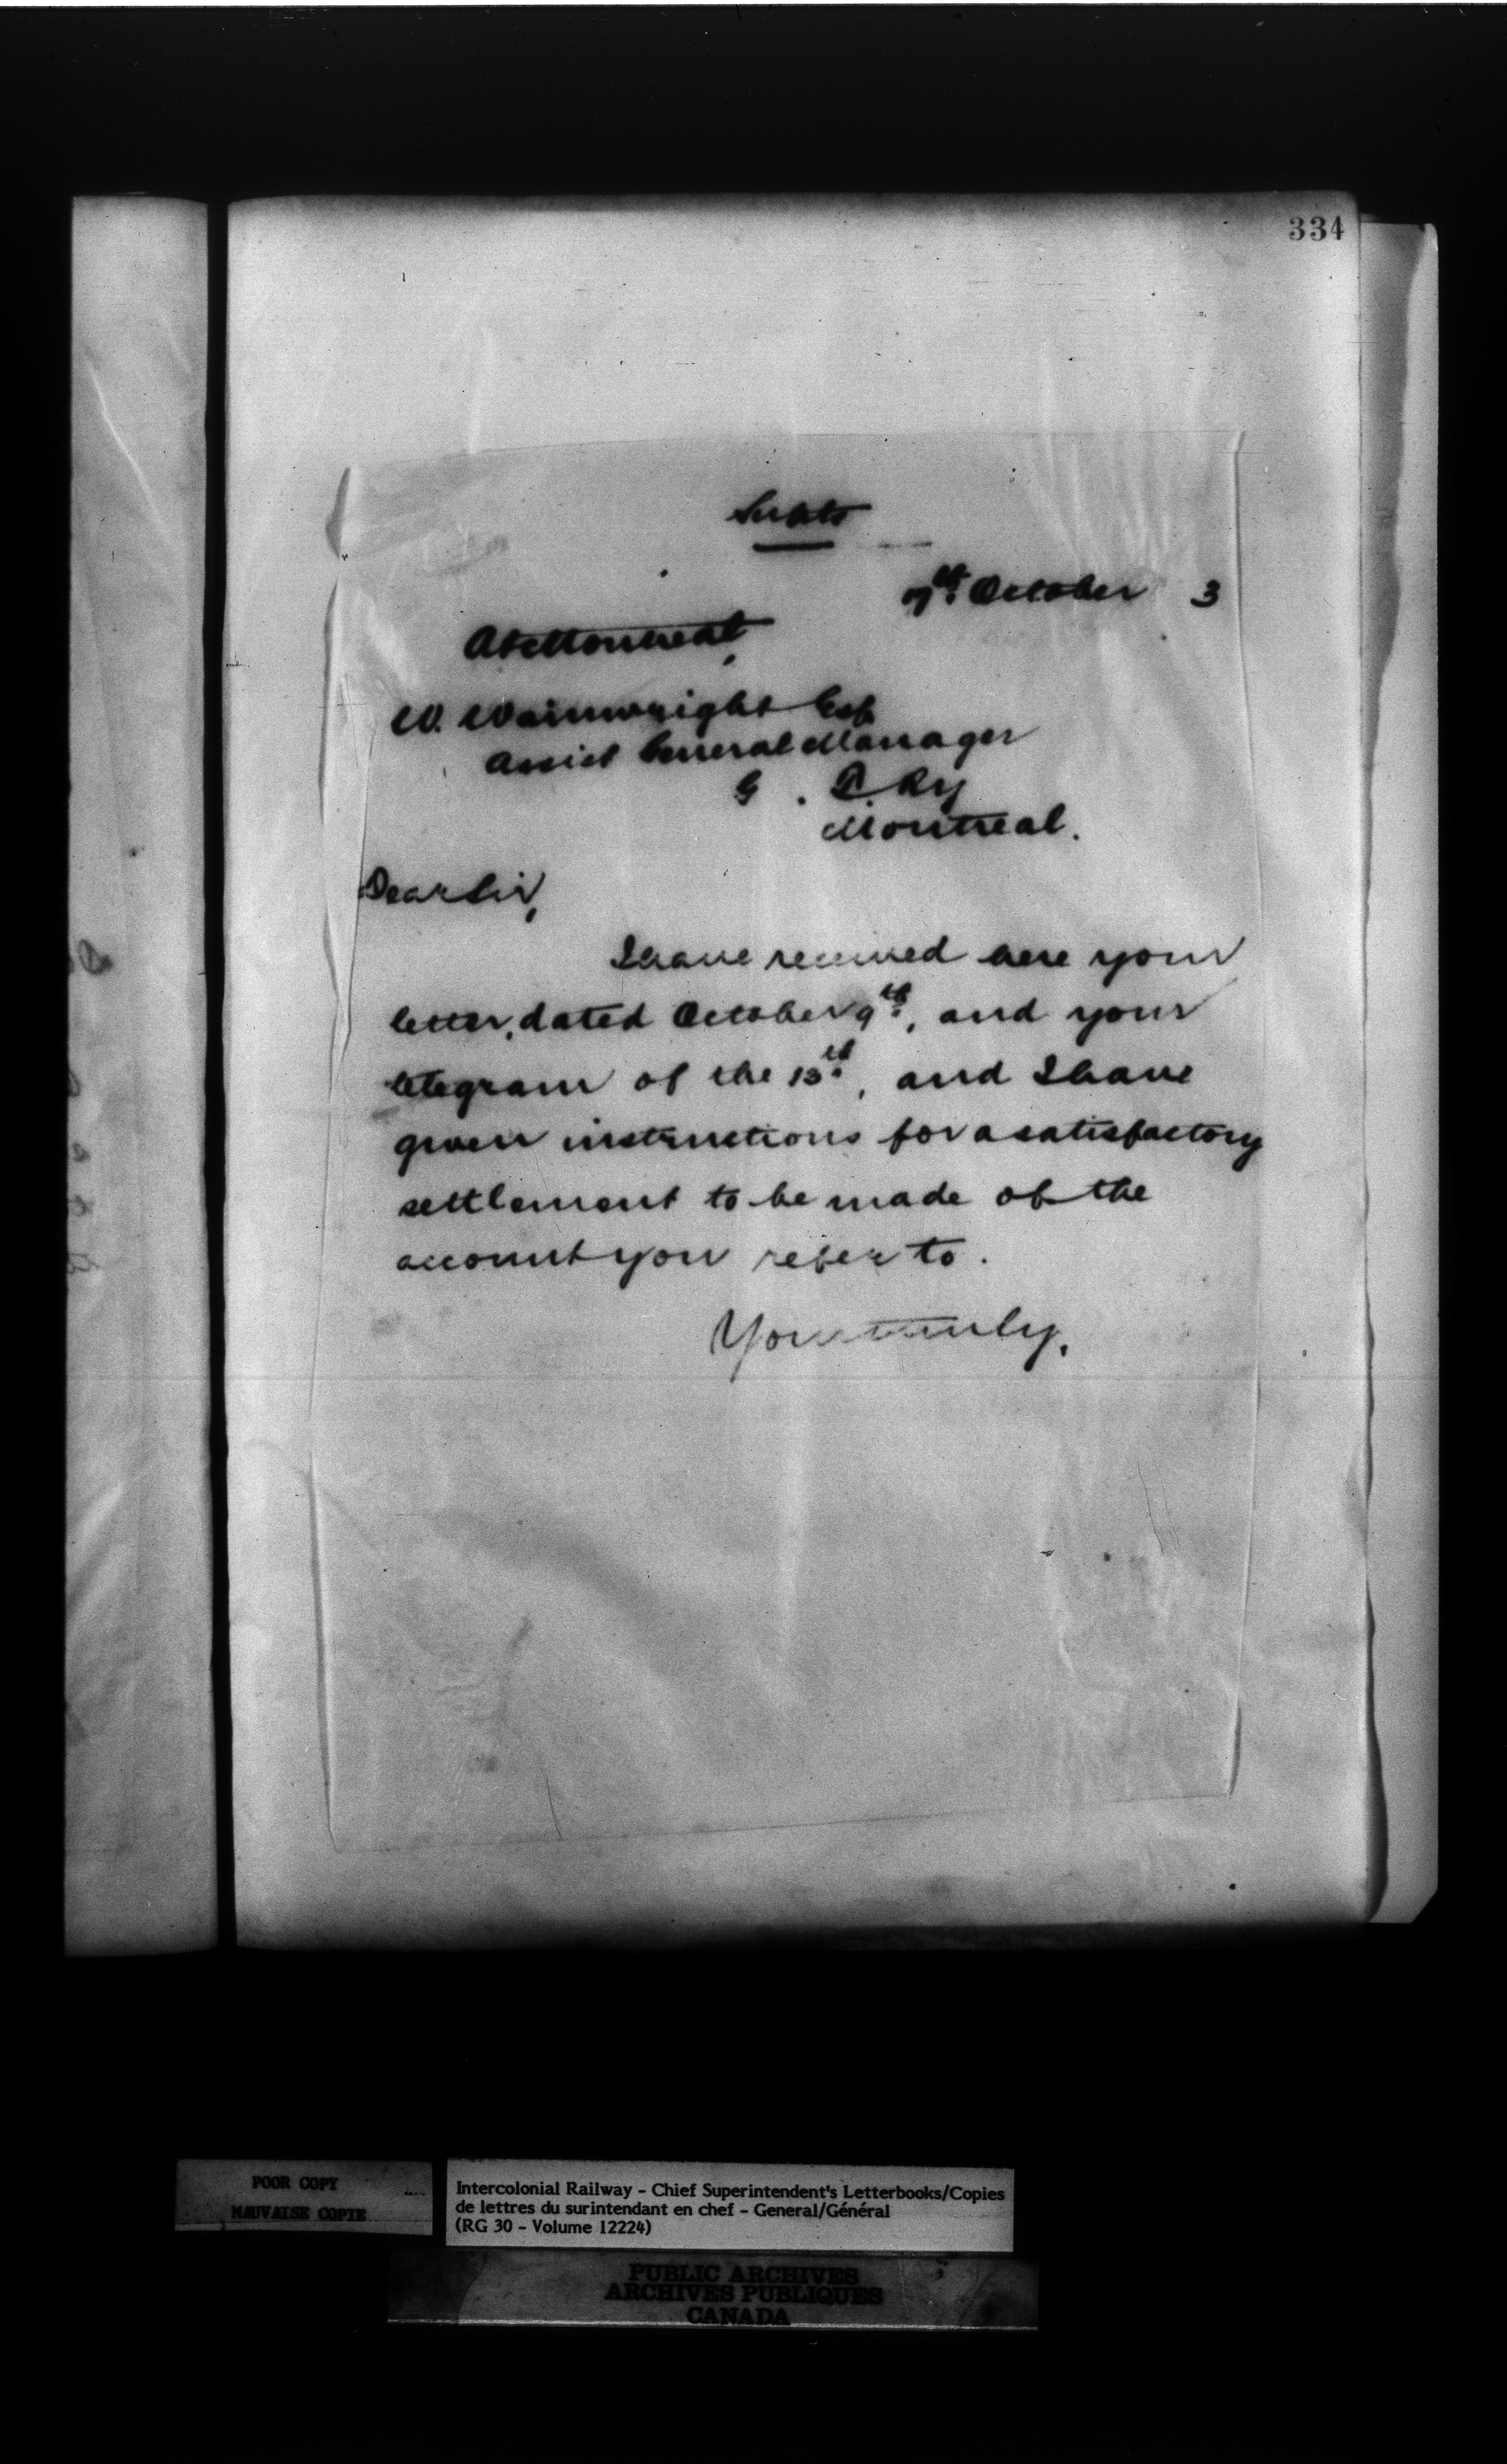 334
Supts
17th October 3
At Montreal,
W. Wainwright Esq
Assist General Manager
G. T. Ry
Montreal.
Dear Sir,
I have received here your
letter, dated October 9th, and your
telegram of the 13th, and I have
given instructions for a satisfactory
settlement to be made of the
account you refer to.
Yours truly,
POOR COPY
MAUVAISE COPIE
Intercolonial Railway - Chief Superintendent's Letterbooks/Copies
de lettres du surintendant en chef - General/Général
(RG 30 - Volume 12224)
PUBLIC ARCHIVES
ARCHIVES PUBLIQUES
CANADA